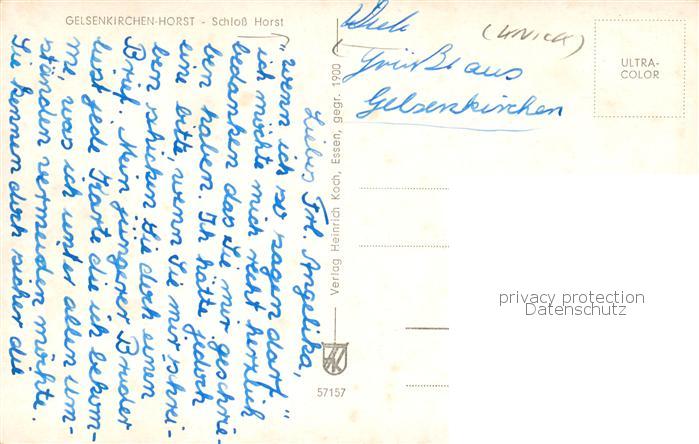 GELSENKIRCHEN-HORST - Schloß Horst
Liebes Frl. Angelika,
"wenn ich so sagen darf"
ich möchte mich recht herzlich
bedanken das Sie mir geschrie-
ben haben. Ich hätte jedoch
eine bitte, wenn Sie mir schrei-
ben schicken Sie doch einen
Brief. Mein jüngerer Bruder
liest jede Karte die ich bekom-
me, was ich unter allen um-
ständen vermeiden möchte.
Sie kennen doch sicher die
Verlag Heinrich Koch, Essen, gegr. 1900
57157
Dich
Grüßt aus
Gelsenkirchen
ULTRA-
COLOR
privacy protection
Datenschutz